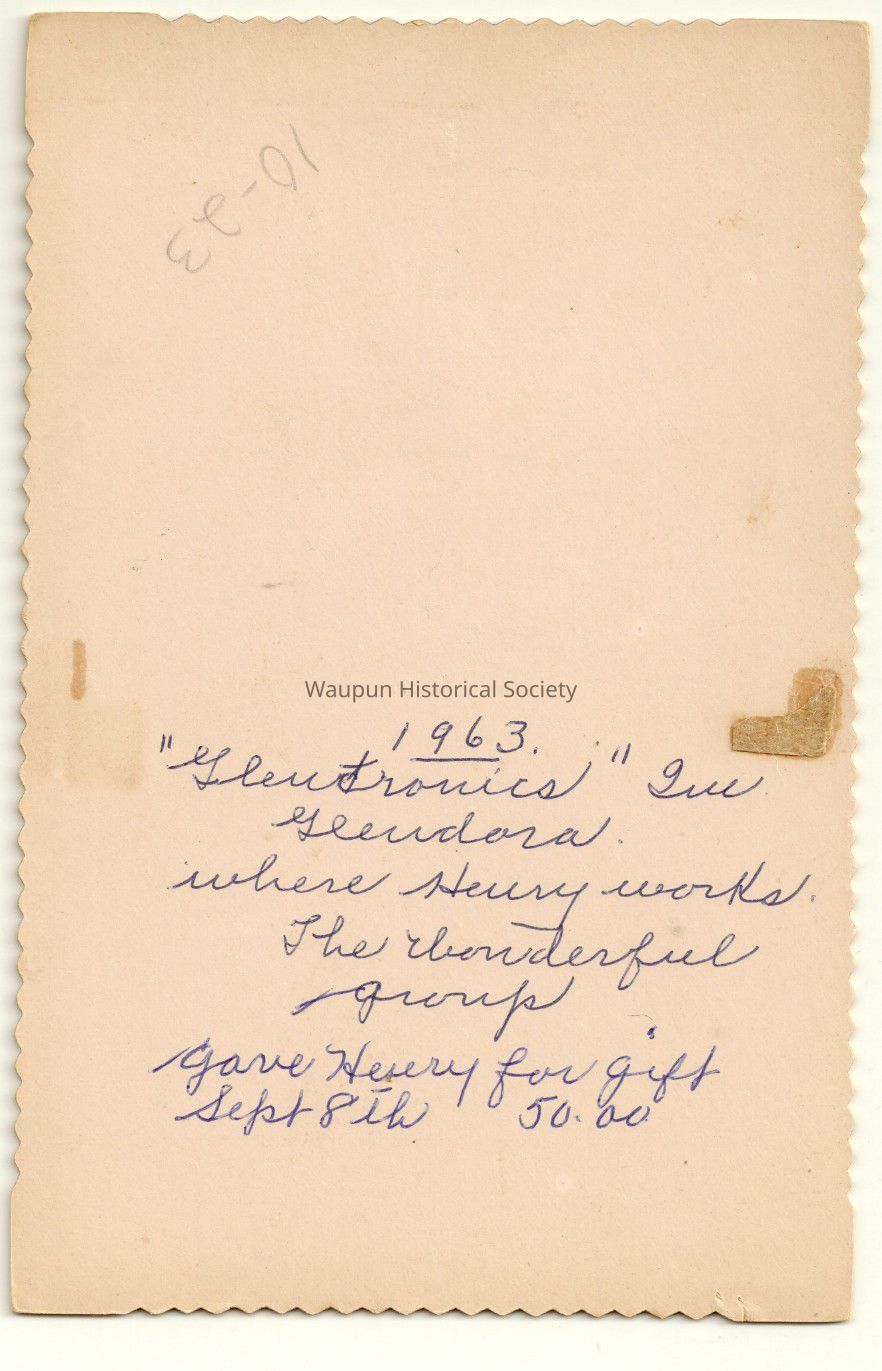 10-23
Waupun Historical Society
1963.
"Glentronics" Inc
Glendora.
where Henry works.
The Wonderful
group
gave Henry for gift
Sept 8th 50.00